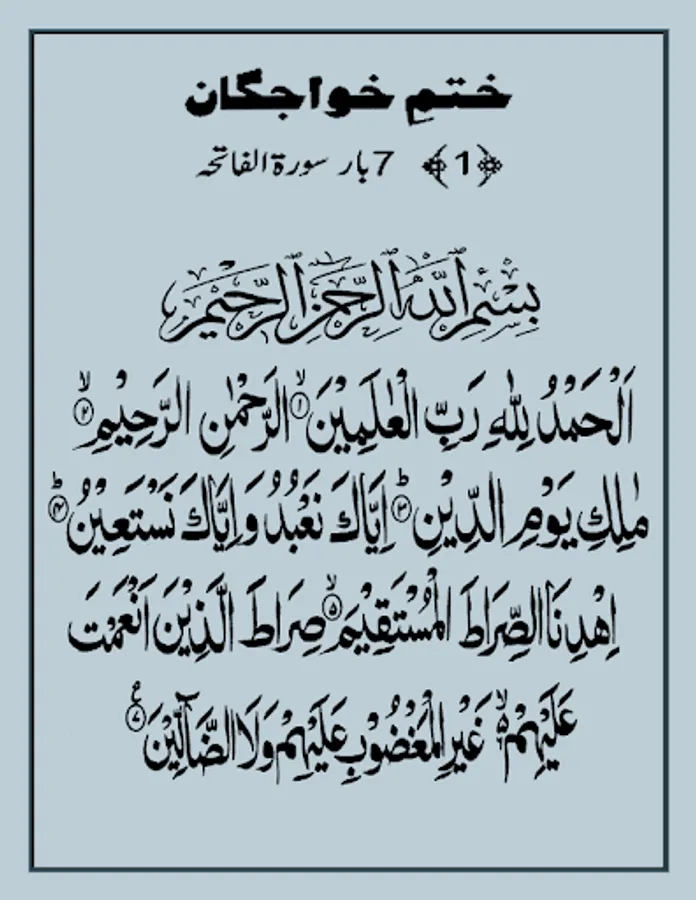 ختمِ خواجگان
﴿1﴾ 7 بار سورۃ الفاتحہ
بِسْمِ اللّٰهِ الرَّحْمٰنِ الرَّحِيْمِ
اَلْحَمْدُ لِلّٰهِ رَبِّ الْعٰلَمِيْنَ ۙ﴿۱﴾ الرَّحْمٰنِ الرَّحِيْمِ ۙ﴿۲﴾
مٰلِكِ يَوْمِ الدِّيْنِ ؕ﴿۳﴾ اِيَّاكَ نَعْبُدُ وَ اِيَّاكَ نَسْتَعِيْنُ ؕ﴿۴﴾
اِهْدِنَا الصِّرَاطَ الْمُسْتَقِيْمَ ۙ﴿۵﴾ صِرَاطَ الَّذِيْنَ اَنْعَمْتَ
عَلَيْهِمْ ۙ۬ غَيْرِ الْمَغْضُوْبِ عَلَيْهِمْ وَلَا الضَّآلِّيْنَ ؑ﴿۷﴾